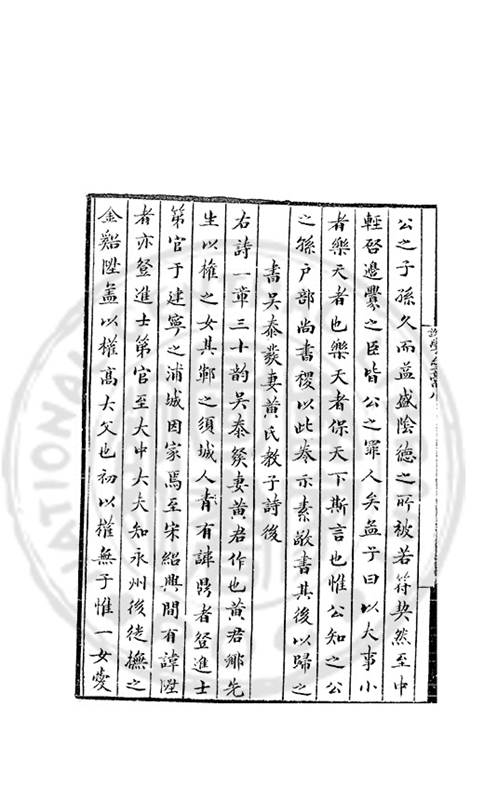 公之子孫久而益盛陰德之所被若符契然至中
輕啓邊釁之臣皆公之罪人矣孟子曰以大事小
者樂天者也樂天者保天下斯言也惟公知之公
之孫戶部尚書稷以此卷示素敬書其後以歸之
書吳泰發妻黃氏教子詩後
右詩一章三十韵吳泰發妻黃君作也黃君鄉先
生以權之女其鄆之須城人有諱者登進士
第官于建寧之浦城因家焉至宋紹興間有諱陞
者亦登進士第官至大中大夫知永州後徙撫之
金谿陞盖以權髙大父也初以權無子惟一女愛